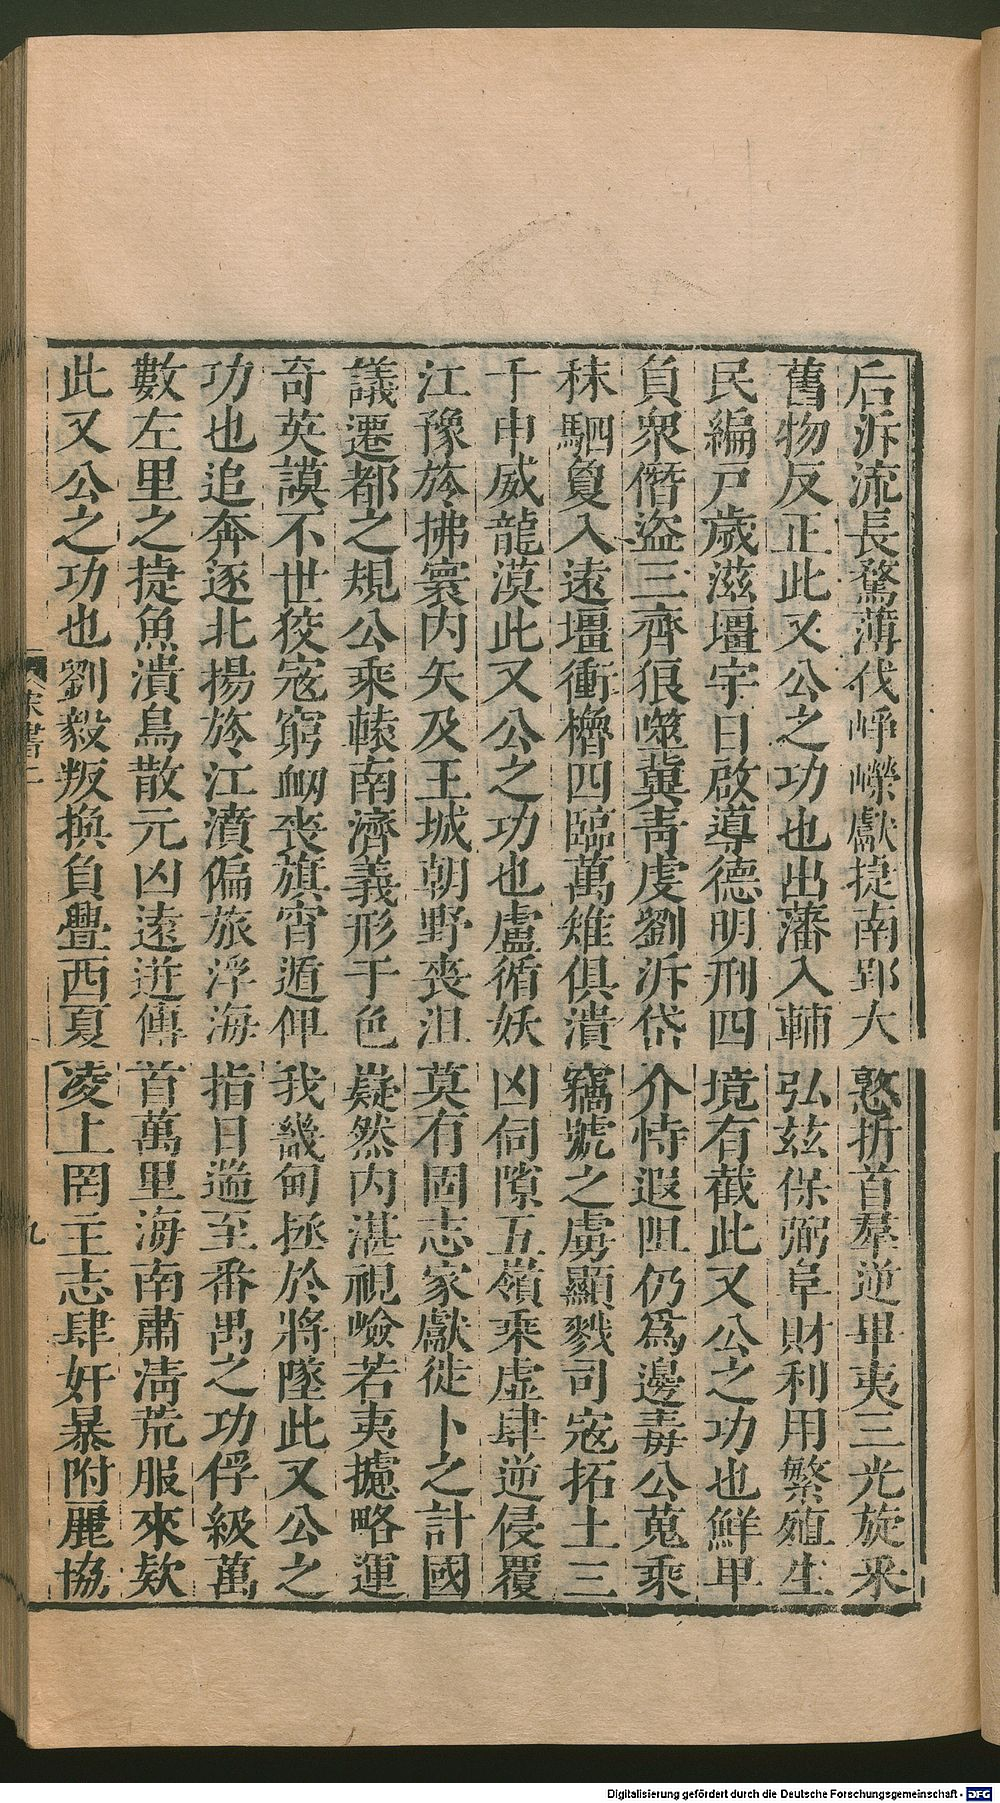 后泝流長騖薄伐崢嶸獻捷南郢大憝折首羣逆畢夷三光旋采
舊物反正此又公之功也出藩入輔弘茲保弼阜財利用繁殖生
民編戸歲滋壃宇日啟導德明刑四境有截此又公之功也鮮卑
負衆僭盜三齊狼噬冀青虔劉泝岱介恃遐阻仍爲邊毒公蒐乘
秣駟敻入遠壃衝櫓四臨萬雉俱潰竊號之虜顯戮司寇拓土三
千申威龍漠此又公之功也盧循妖凶伺隙五嶺乘虛肆逆侵覆
江豫旍拂寰内矢及王城朝野喪沮莫有固志家獻徙卜之計國
議遷都之規公乘轅南濟義形于色嶷然内湛視嶮若夷攄略運
奇英謨不世狡寇窮衂喪旗宵遁俾我畿甸拯於將墜此又公之
功也追奔逐北揚旍江濆偏旅浮海指日遄至番禺之功俘級萬
數左里之捷魚潰鳥散元凶遠迸傳首萬里海南肅清荒服來欵
此又公之功也劉毅叛換負釁西夏凌上罔主志肆奸暴附麗協
宋書一
九
Digitalisierung gefördert durch die Deutsche Forschungsgemeinschaft - DFG